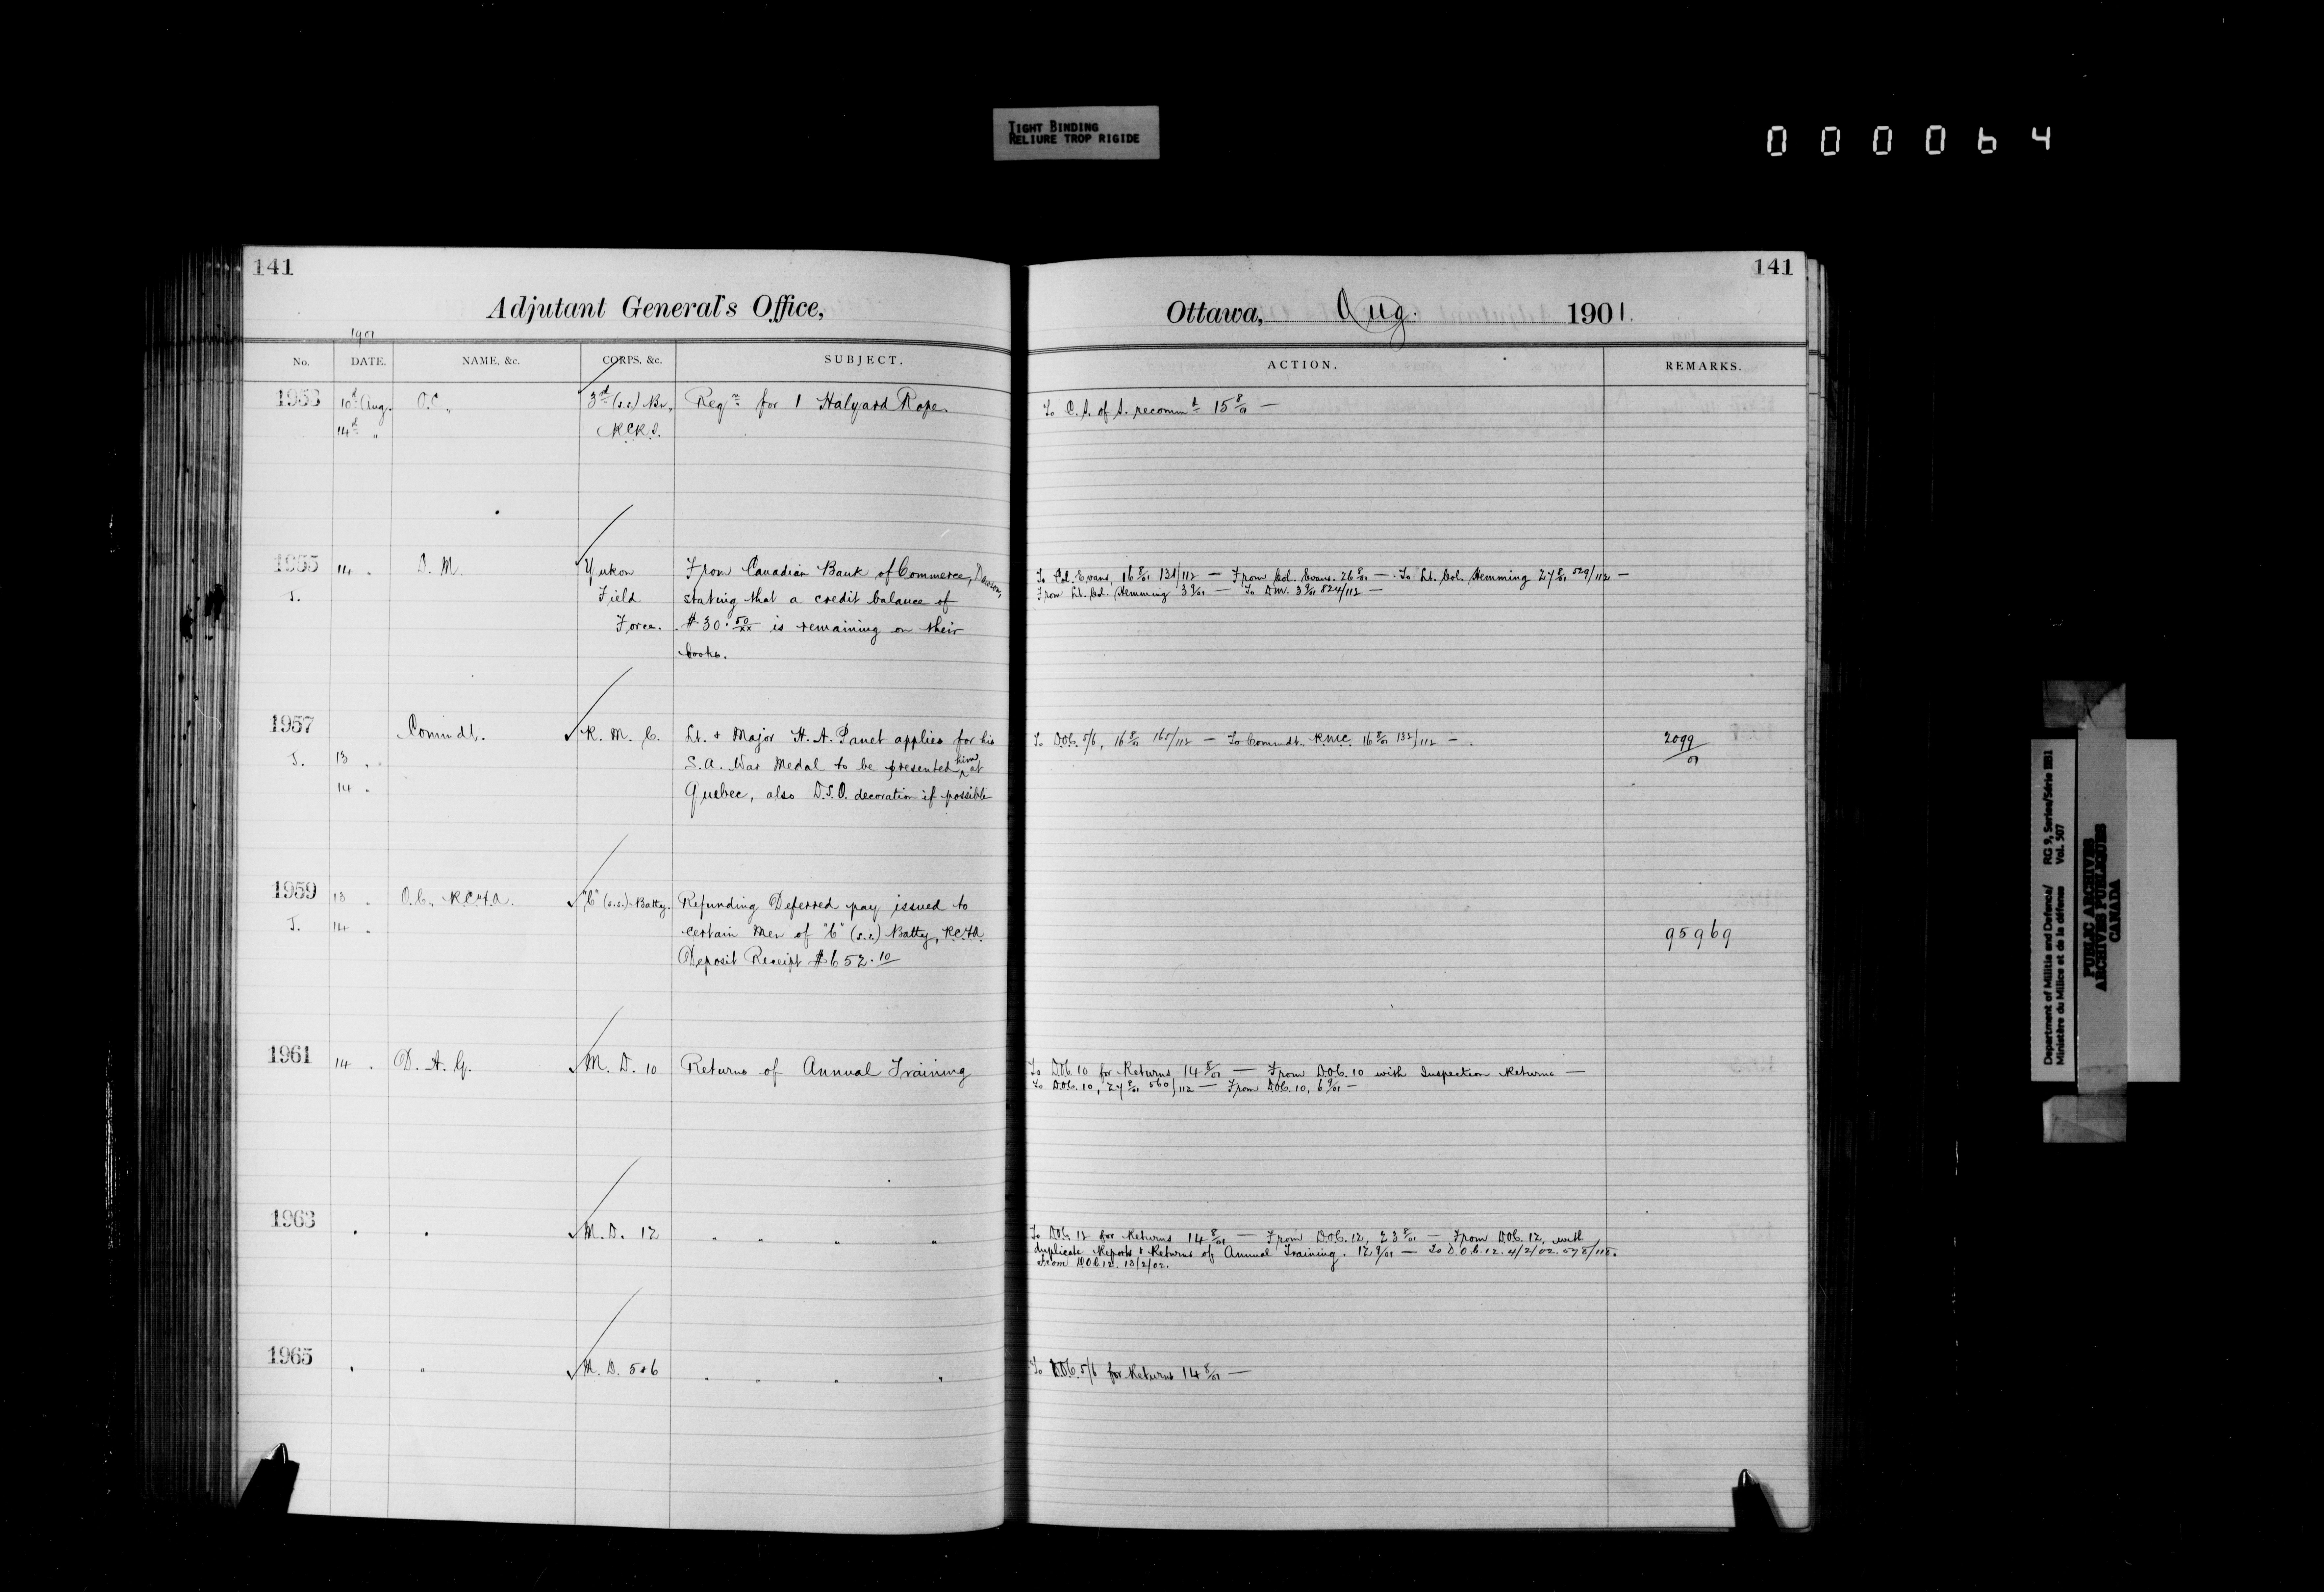 TIGHT BINDING
RELIURE TROP RIGIDE
000064
141
141
Adjutant General's Office,
Ottawa, Aug. 1901.
1901
No. DATE. NAME, &c. CORPS, &c. SUBJECT.
ACTION. REMARKS.
1953 10th Aug. O.C., 3rd (s.s.) Bn, Reqn for 1 Halyard Rope.
14th " R.C.R.I.
To C.S. of S. recommd 15 8/01 —
1955 14 " D. M. Yukon From Canadian Bank of Commerce, Dawson,
J. Field stating that a credit balance of
Force. $30.50/xx is remaining on their
books.
To Col. Evans, 16 8/01 131/112 — From Col. Evans. 26 8/01 — To Lt. Col. Hemming 27 8/01 529/112 —
From Lt. Col. Hemming 3 9/01 — To DM. 3 9/01 524/112 —
1957 Commdt. R. M. C. Lt. & Major H. A. Panet applies for his
J. 13 " S.A. War Medal to be presented him at
14 " Quebec, also D.S.O. decoration if possible
To DOC. 5/6, 16 8/01 165/112 — To Commdt. R.M.C. 16 8/01 132/112 —
2099/01
1959 13 " O.C., R.C.F.A. "C" (s.s.) Batty. Refunding Deferred pay issued to
J. 14 " certain Men of "C" (s.s.) Batty, R.C.F.A.
Deposit Receipt $652.10
95969
1961 14 " D. A. G. M. D. 10 Returns of Annual Training
To DOC. 10 for Returns 14 8/01 — From D.O.C. 10 with Inspection Returns —
To DOC. 10, 27 8/01 560/112 — From D.O.C. 10, 6 9/01 —
1963 " " M. D. 12 " " " "
To DOC. 12 for Returns 14 8/01 — From D.O.C. 12, 23 8/01 — From D.O.C. 12, with
duplicate Reports & Returns of Annual Training. 12 9/01 — To D.O.C. 12. 4/2/02. 578/118.
From DOC 12. 13/2/02.
1965 " " M. D. 5 & 6 " " " "
To DOC. 5/6 for Returns 14 8/01 —
Department of Militia and Defence/ RG 9, Series/Série IIB1
Ministère du Milice et de la défense Vol. 507
PUBLIC ARCHIVES
ARCHIVES PUBLIQUES
CANADA